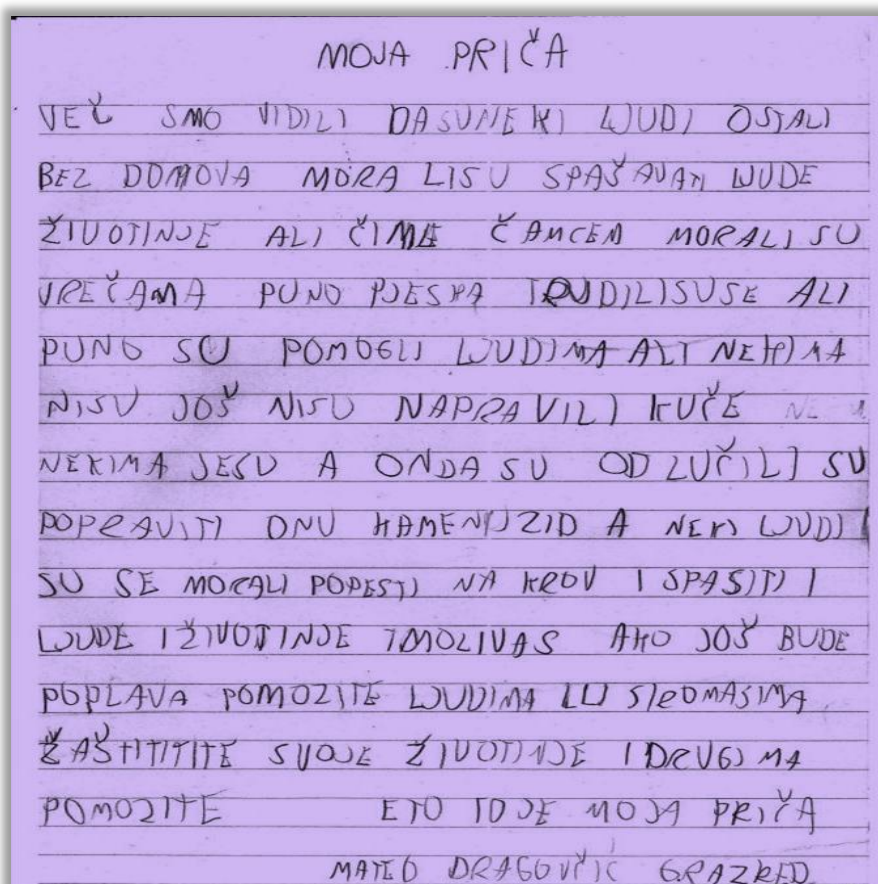 MOJA PRIČA
VEČ SMO VIDILI DASUNEKI LJUDI OSTALI
BEZ DOMOVA MORA LISU SPAŠAVATI LJUDE
ŽIVOTINJE ALI ČIME ČAMCEM MORALI SU
VREČAMA PUNO PJESKA TRUDILISUSE ALI
PUNO SU POMOGLI LJUDIMA ALI NEKIMA
NISU JOŠ NISU NAPRAVILI KUČE
NEKIMA JESU A ONDA SU ODLUČILI SU
POPRAVITI ONU KAMENI ZID A NEKI LJUDI
SU SE MORALI POPESTI NA KROV I SPASITI I
LJUDE I ŽIVOTINJE IMOLIVAS AKO JOŠ BUDE
POPLAVA POMOZITE LJUDIMA SIROMASIMA
ŽAŠTITITE SVOJE ŽIVOTINJE I DRUGIMA
POMOZITE ETO TO JE MOJA PRIČA
MATEO 6.RAZRED